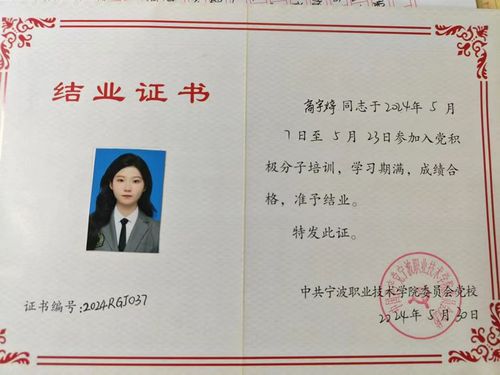 结业证书
证书编号:2024RGJ037
高宇婷 同志于2024年 5 月
7日至 5 月 23日参加入党积
极分子培训，学习期满，成绩合
格，准予结业。
特发此证。
中共宁波职业技术学院委员会党校
2024年 5 月30日